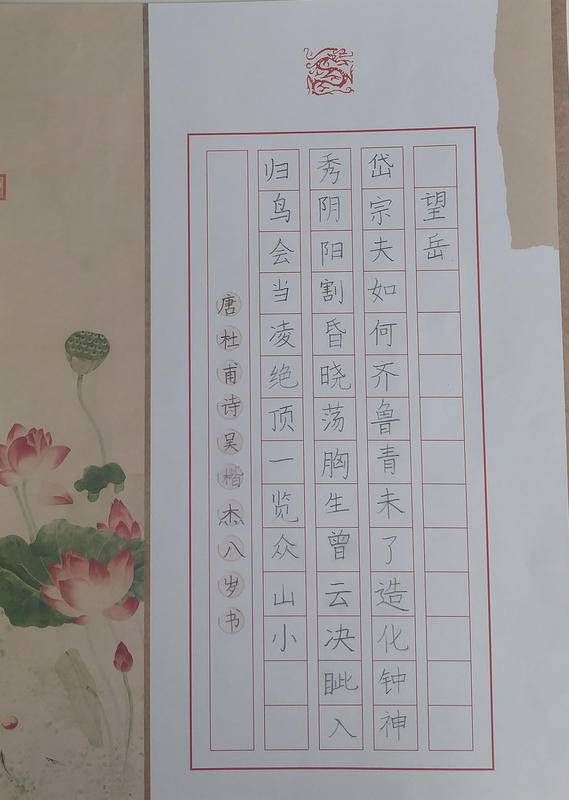 望岳
岱宗夫如何齐鲁青未了造化钟神
秀阴阳割昏晓荡胸生曾云决眦入
归鸟会当凌绝顶一览众山小
唐杜甫诗吴楷杰八岁书